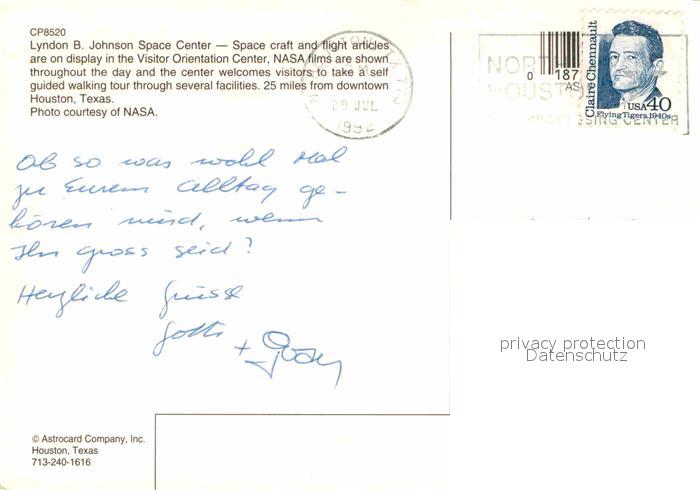 CP8520
Lyndon B. Johnson Space Center — Space craft and flight articles
are on display in the Visitor Orientation Center, NASA films are shown
throughout the day and the center welcomes visitors to take a self
guided walking tour through several facilities. 25 miles from downtown
Houston, Texas.
Photo courtesy of NASA.
29 JUL
1992
NORTH
HOUSTON
PROCESSING CENTER
0 187
AS
Claire Chennault
USA 40
Flying Tigers, 1940s
Ob so was wohl Mal
zu Eurem Alltag ge-
hören wird, wenn
Ihr gross seid?
Herzliche Grüsse
+
privacy protection
Datenschutz
© Astrocard Company, Inc.
Houston, Texas
713-240-1616